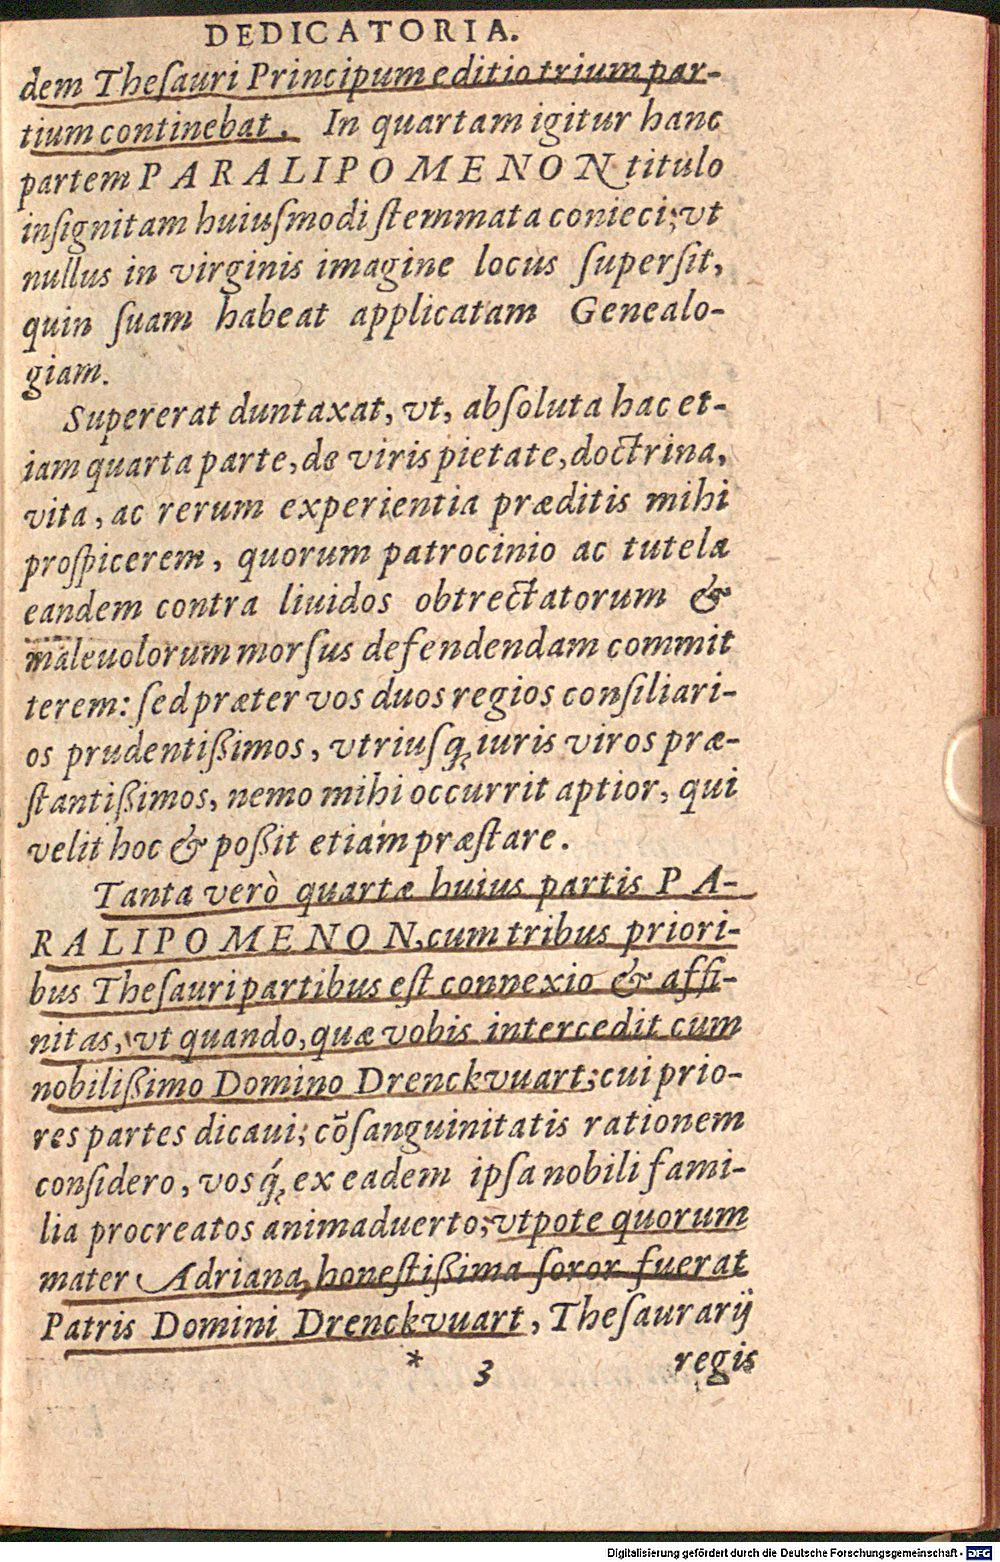 DEDICATORIA.
dem Theſauri Principum editio trium par-
tium continebat. In quartam igitur hanc
partem PARALIPOMENON titulo
inſignitam huiuſmodi ſtemmata conieci; vt
nullus in virginis imagine locus ſuperſit,
quin ſuam habeat applicatam Genealo-
giam.
Supererat duntaxat, vt, abſoluta hac et-
iam quarta parte, de viris pietate, doctrina,
vita, ac rerum experientia præditis mihi
proſpicerem, quorum patrocinio ac tutela
eandem contra liuidos obtrectatorum &
maleuolorum morſus defendendam commit
terem: ſed præter vos duos regios conſiliari-
os prudentißimos, vtriuſq; iuris viros præ-
ſtantißimos, nemo mihi occurrit aptior, qui
velit hoc & poßit etiam præſtare.
Tanta verò quartæ huius partis PA-
RALIPOMENON, cum tribus priori-
bus Theſauri partibus eſt connexio & affi-
nitas, vt quando, quæ vobis intercedit cum
nobilißimo Domino Drenckvuart; cui prio-
res partes dicaui; cõſanguinitatis rationem
conſidero, vosq́; ex eadem ipſa nobili fami-
lia procreatos animaduerto; vtpote quorum
mater Adriana, honeſtißima ſoror fuerat
Patris Domini Drenckvuart, Theſaurarij
* 3 regis
Digitalisierung gefördert durch die Deutsche Forschungsgemeinschaft - DFG